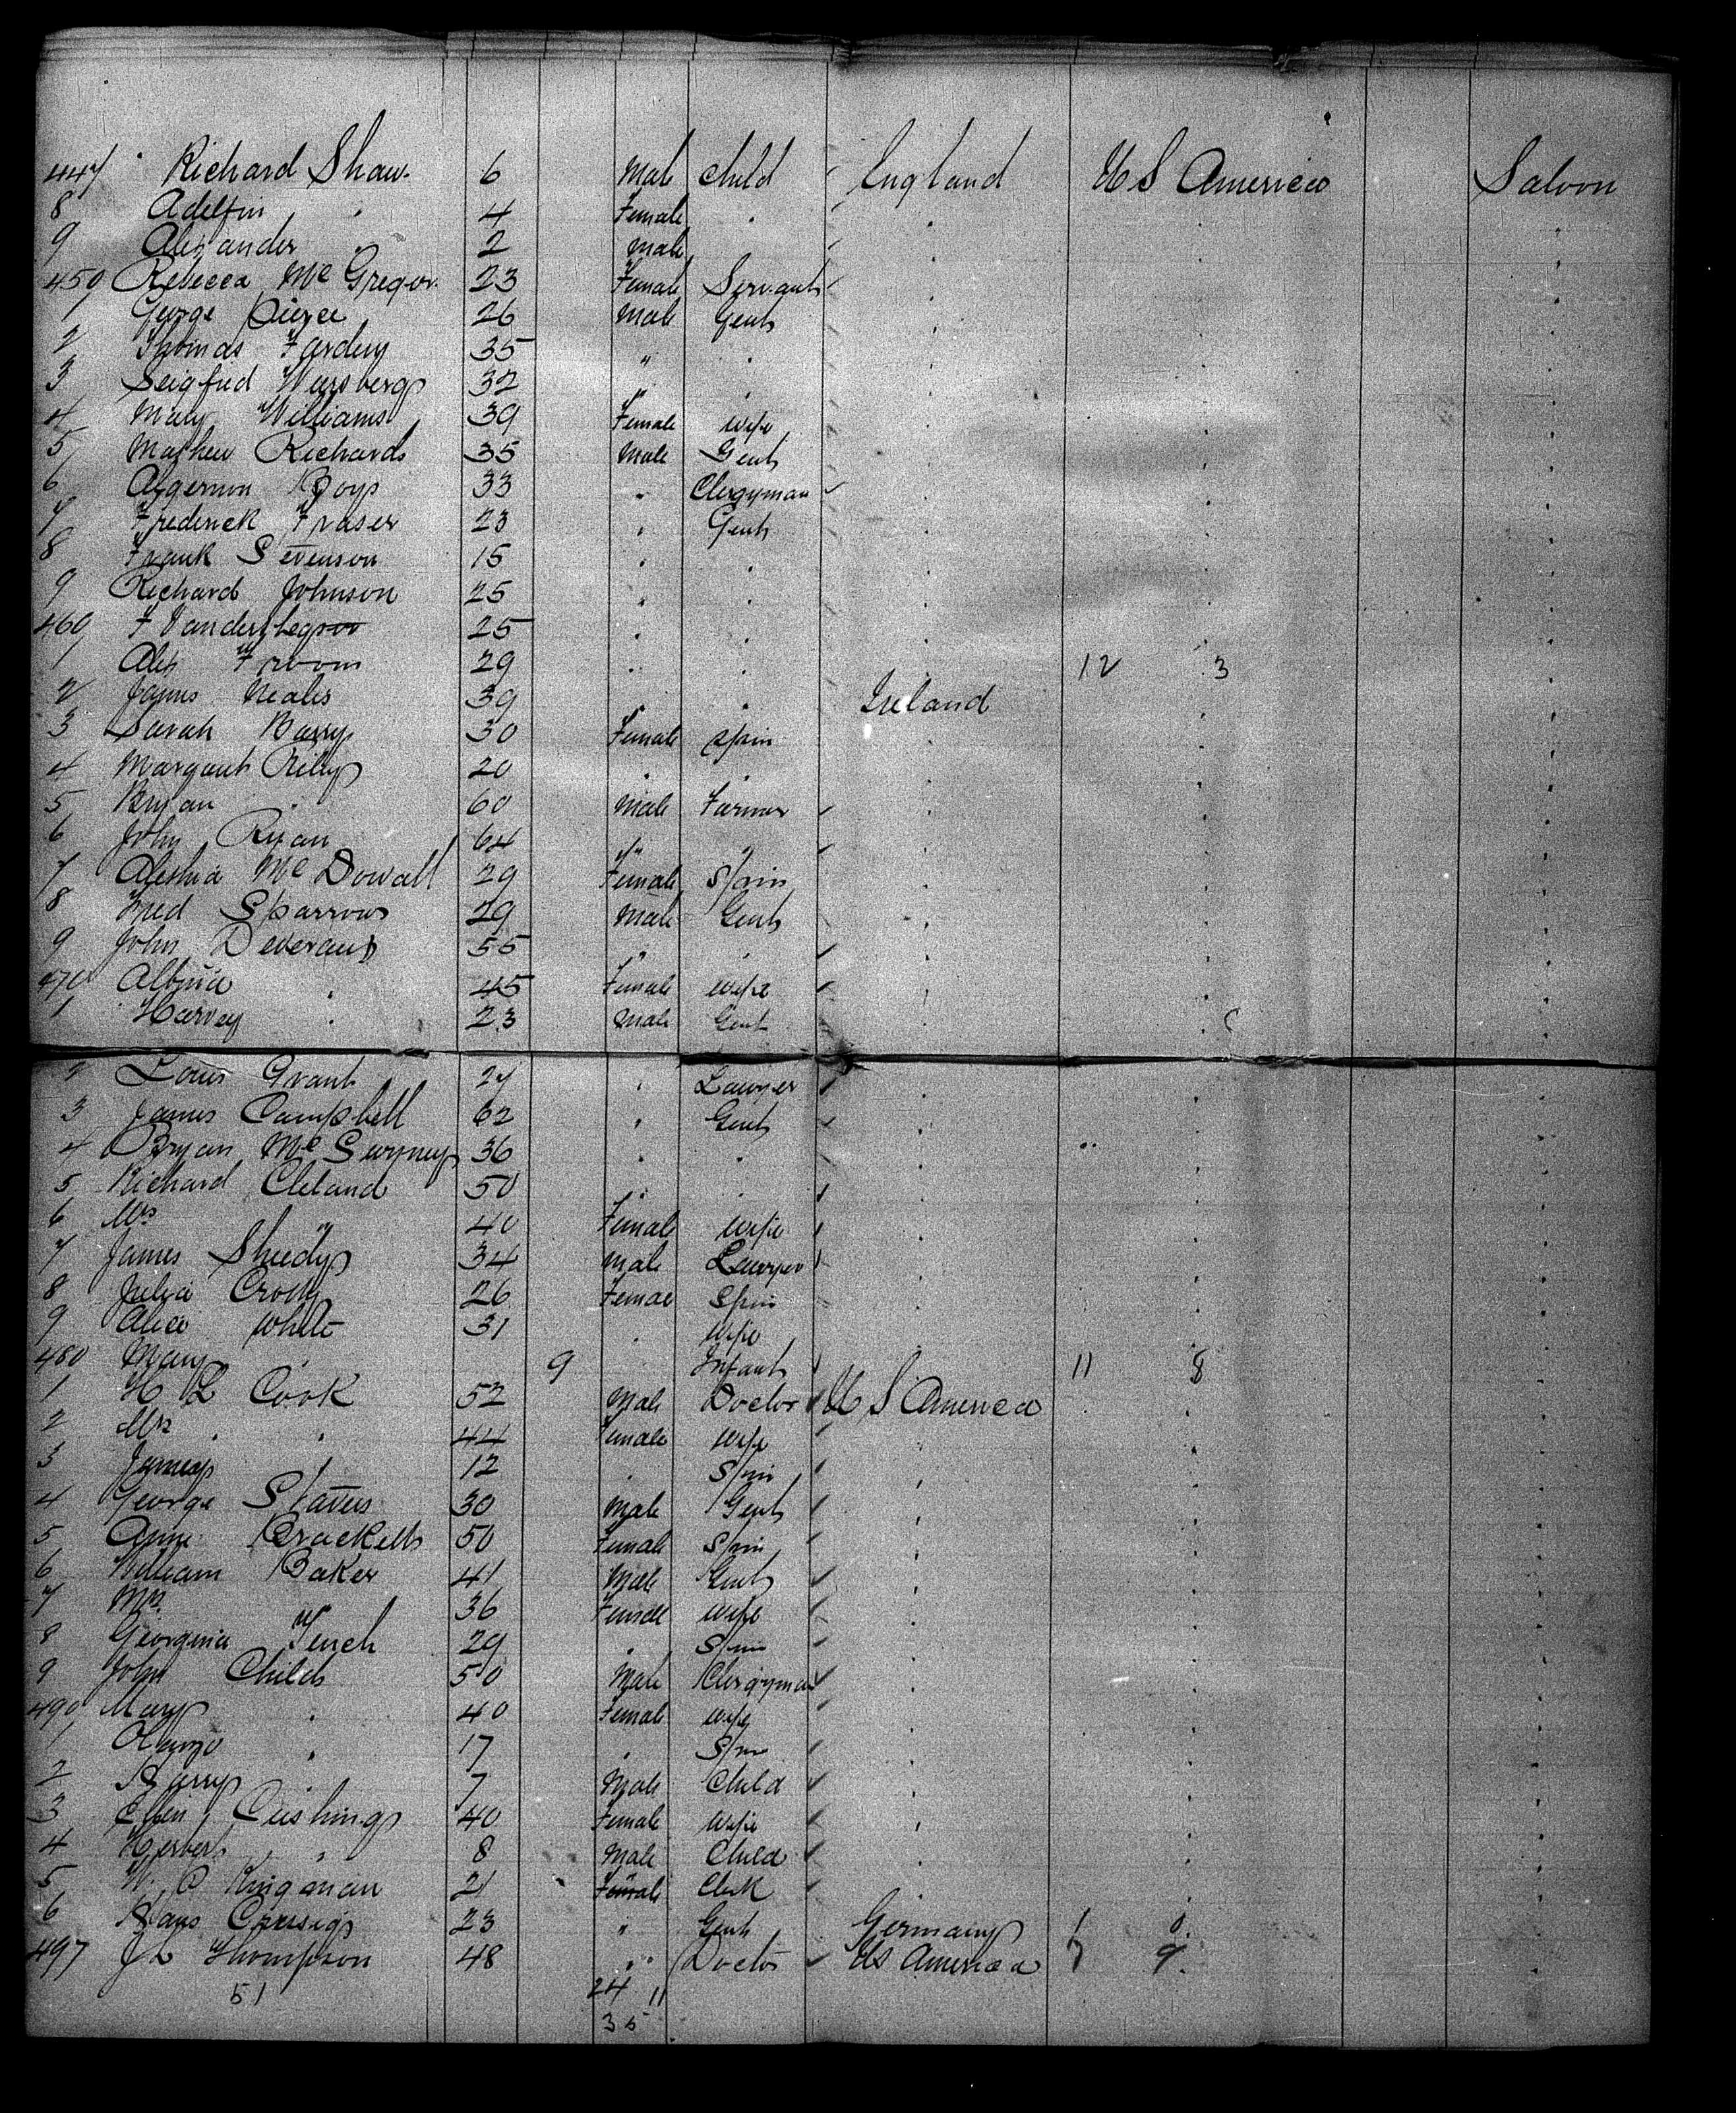 447 Richard Shaw 6 Male Child England U S America Saloon
8 Adelfin " 4 Female "
9 Alexander " 2 Male
450 Rebecca Mc Gregor 23 Female Servant
1 George Pierce 26 Male Gent
2 Thomas 35 " "
3 Seigfred 32 " "
4 Mary Williams 39 Female wife
5 Mathew Richards 35 Male Gent
6 Algernon Boys 33 " Clergyman
7 Frederick Fraser 23 " Gent
8 Frank Stevenson 15 " "
9 Richard Johnson 25 " "
460 F 25 " "
1 Alex Froom 29 " " 12 3
2 James Neales 39 " " Ireland
3 Sarah Barry 30 Female Spin
4 Margaret Rilly 20 " "
5 Bryan " 60 Male Farmer
6 John Ryan 64 " "
7 Mc Dowall 29 Female Spin
8 Fred Sparrow 29 Male Gent
9 John Deveraux 55 " "
470 Albina " 45 Female wife
1 Harvey " 23 Male Gent
2 Louis Grant 27 " Lawyer
3 James Campbell 62 " Gent
4 Bryan Mc Swyney 36 " "
5 Richard Cleland 50 " "
6 Mrs " 40 Female wife
7 James Sheedy 34 Male Lawyer
8 Julia Crolly 26 Femae Spin
9 Alice White 31 " wife
480 Mary " 9 " Infant 11 8
1 H L Cook 52 Male Doctor U S America
2 Mrs " 44 Female wife
3 " 12 " Spin
4 George 30 Male Gent
5 Anne Brackett 50 Female Spin
6 William Baker 41 Male Gent
7 Mrs " 36 Female wife
8 Georgina 29 " Spin
9 John Childs 50 Male Clergyman
490 Mary " 40 Female wife
1 " 17 " Spin
2 Harry " 7 Male Child
3 Ellen Cushing 40 Female wife
4 Herbert " 8 Male Child
5 W. C Kingman 21 Female Clerk
6 Hans 23 " Gent Germany 1 0
497 J L Thompson 48 " Doctor US America 7 9
51 24 11
35